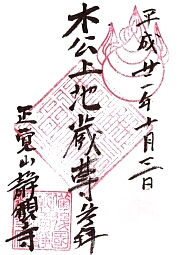 平成廿一年十月三日
木公上地蔵尊
正覚山静観寺